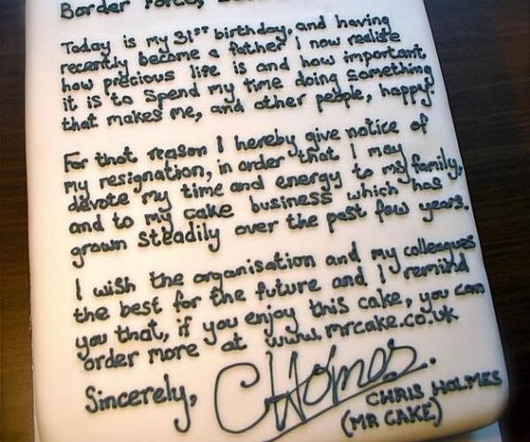 Border Force,
Today is my 31st birthday, and having
recently become a father I now realise
how precious life is and how important
it is to spend my time doing something
that makes me, and other people, happy.
For that reason I hereby give notice of
my resignation, in order that I may
devote my time and energy to my family,
and to my cake business which has
grown steadily over the past few years.
I wish the organisation and my colleagues
the best for the future and I remind
you that, if you enjoy this cake, you can
order more at www.mrcake.co.uk
Sincerely,
CHolmes.
CHRIS HOLMES
(MR CAKE)